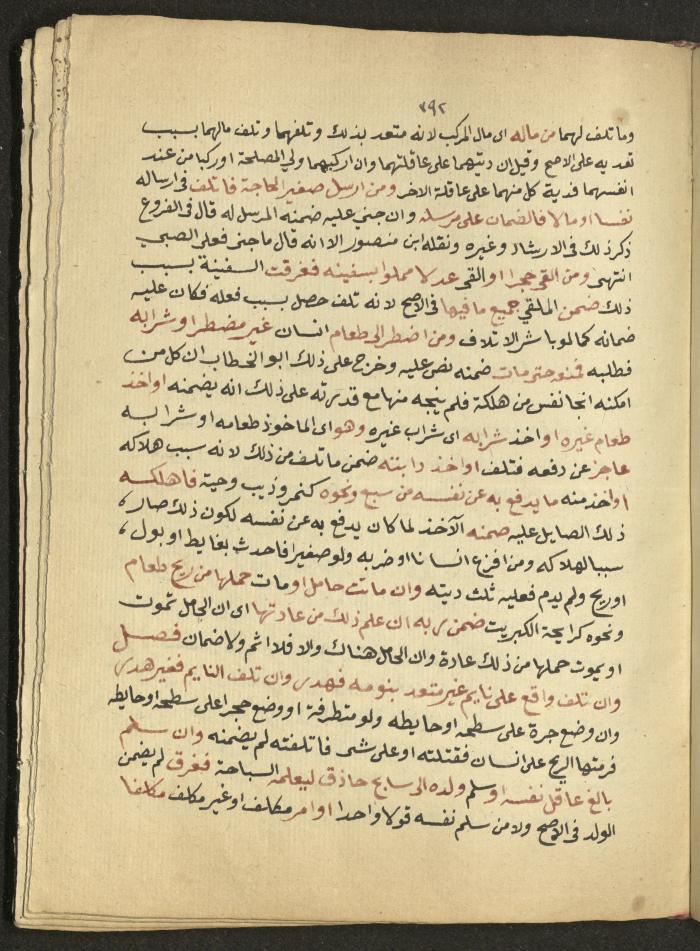 ٢٩٢
وما تلف لهما من ماله اى مال المركب لانه متعد بذلك وتلفهما وتلف مالهما بسبب
تعديه على الاصح وقيل ان ديتهما على عاقلتهما وان اركبهما ولي المصلحة او ركبا من عند
انفسهما فدية كل منهما على عاقلة الاخر ومن ارسل صغيرا لحاجة فاتلف فى ارساله
نفسا او مالا فالضمان على مرسله وان جني عليه ضمنه المرسل له قال فى الفروع
ذكر ذلك فى الارشاد وغيره ونقله ابن منصور الا انه قال ما جنى فعلى الصبي
انتهى ومن القى حجرا او القى عدلا مملوا بسفينه فغرقت السفينة بسبب
ذلك ضمن الملقي جميع ما فيها فى الاصح لانه تلف حصل بسبب فعله فكان عليه
ضمانه كما لو باشر الاتلاف ومن اضطر الى طعام انسان غير مضطر او شرابه
فطلبه فمنعه حتى مات ضمنه نص عليه وخرج على ذلك ابو الخطاب ان كل من
امكنه انجا نفس من هلكة فلم ينجه منها مع قدرته على ذلك انه يضمنه او اخذ
طعام غيره او اخذ شرابه اى شراب غيره وهو اى الماخوذ طعامه او شرابه
عاجز عن دفعه فتلف او اخذ دابته ضمن ما تلف من ذلك لانه سبب هلاكه
او اخذ منه ما يدفع به عن نفسه من سبع ونحوه كنمر وذيب وحية فاهلكه
ذلك الصايل عليه ضمنه الآخذ لما كان يدفع به عن نفسه لكون ذلك صار
سببا لهلاكه ومن افزع انسانا او ضربه ولو صغيرا فاحدث بغايط او بول
او ريح ولم يدم فعليه ثلث ديته وان ماتت حامل او مات حملها من ريح طعام
ونحوه كرايحة الكبريت ضمن ربه ان علم ذلك من عادتها اى ان الحامل تموت
او يموت حملها من ذلك عادة وان الحامل هناك والا فلا اثم ولا ضمان فصل
وان تلف واقع على نايم غير متعد بنومه فهدر وان تلف النايم فغير هدر
وان وضع جرة على سطحه او حايطه ولو متطرفة او وضع حجرا على سطحه او حايطه
فرمتها الريح على انسان فقتلته او على شى فاتلفته لم يضمنه وان سلم
بالغ عاقل نفسه او سلم ولده الى سابح حاذق ليعلمه السباحة فغرق لم يضمن
الولد فى الاصح ولا من سلم نفسه قولا واحدا او امر مكلف او غير مكلف مكلفا